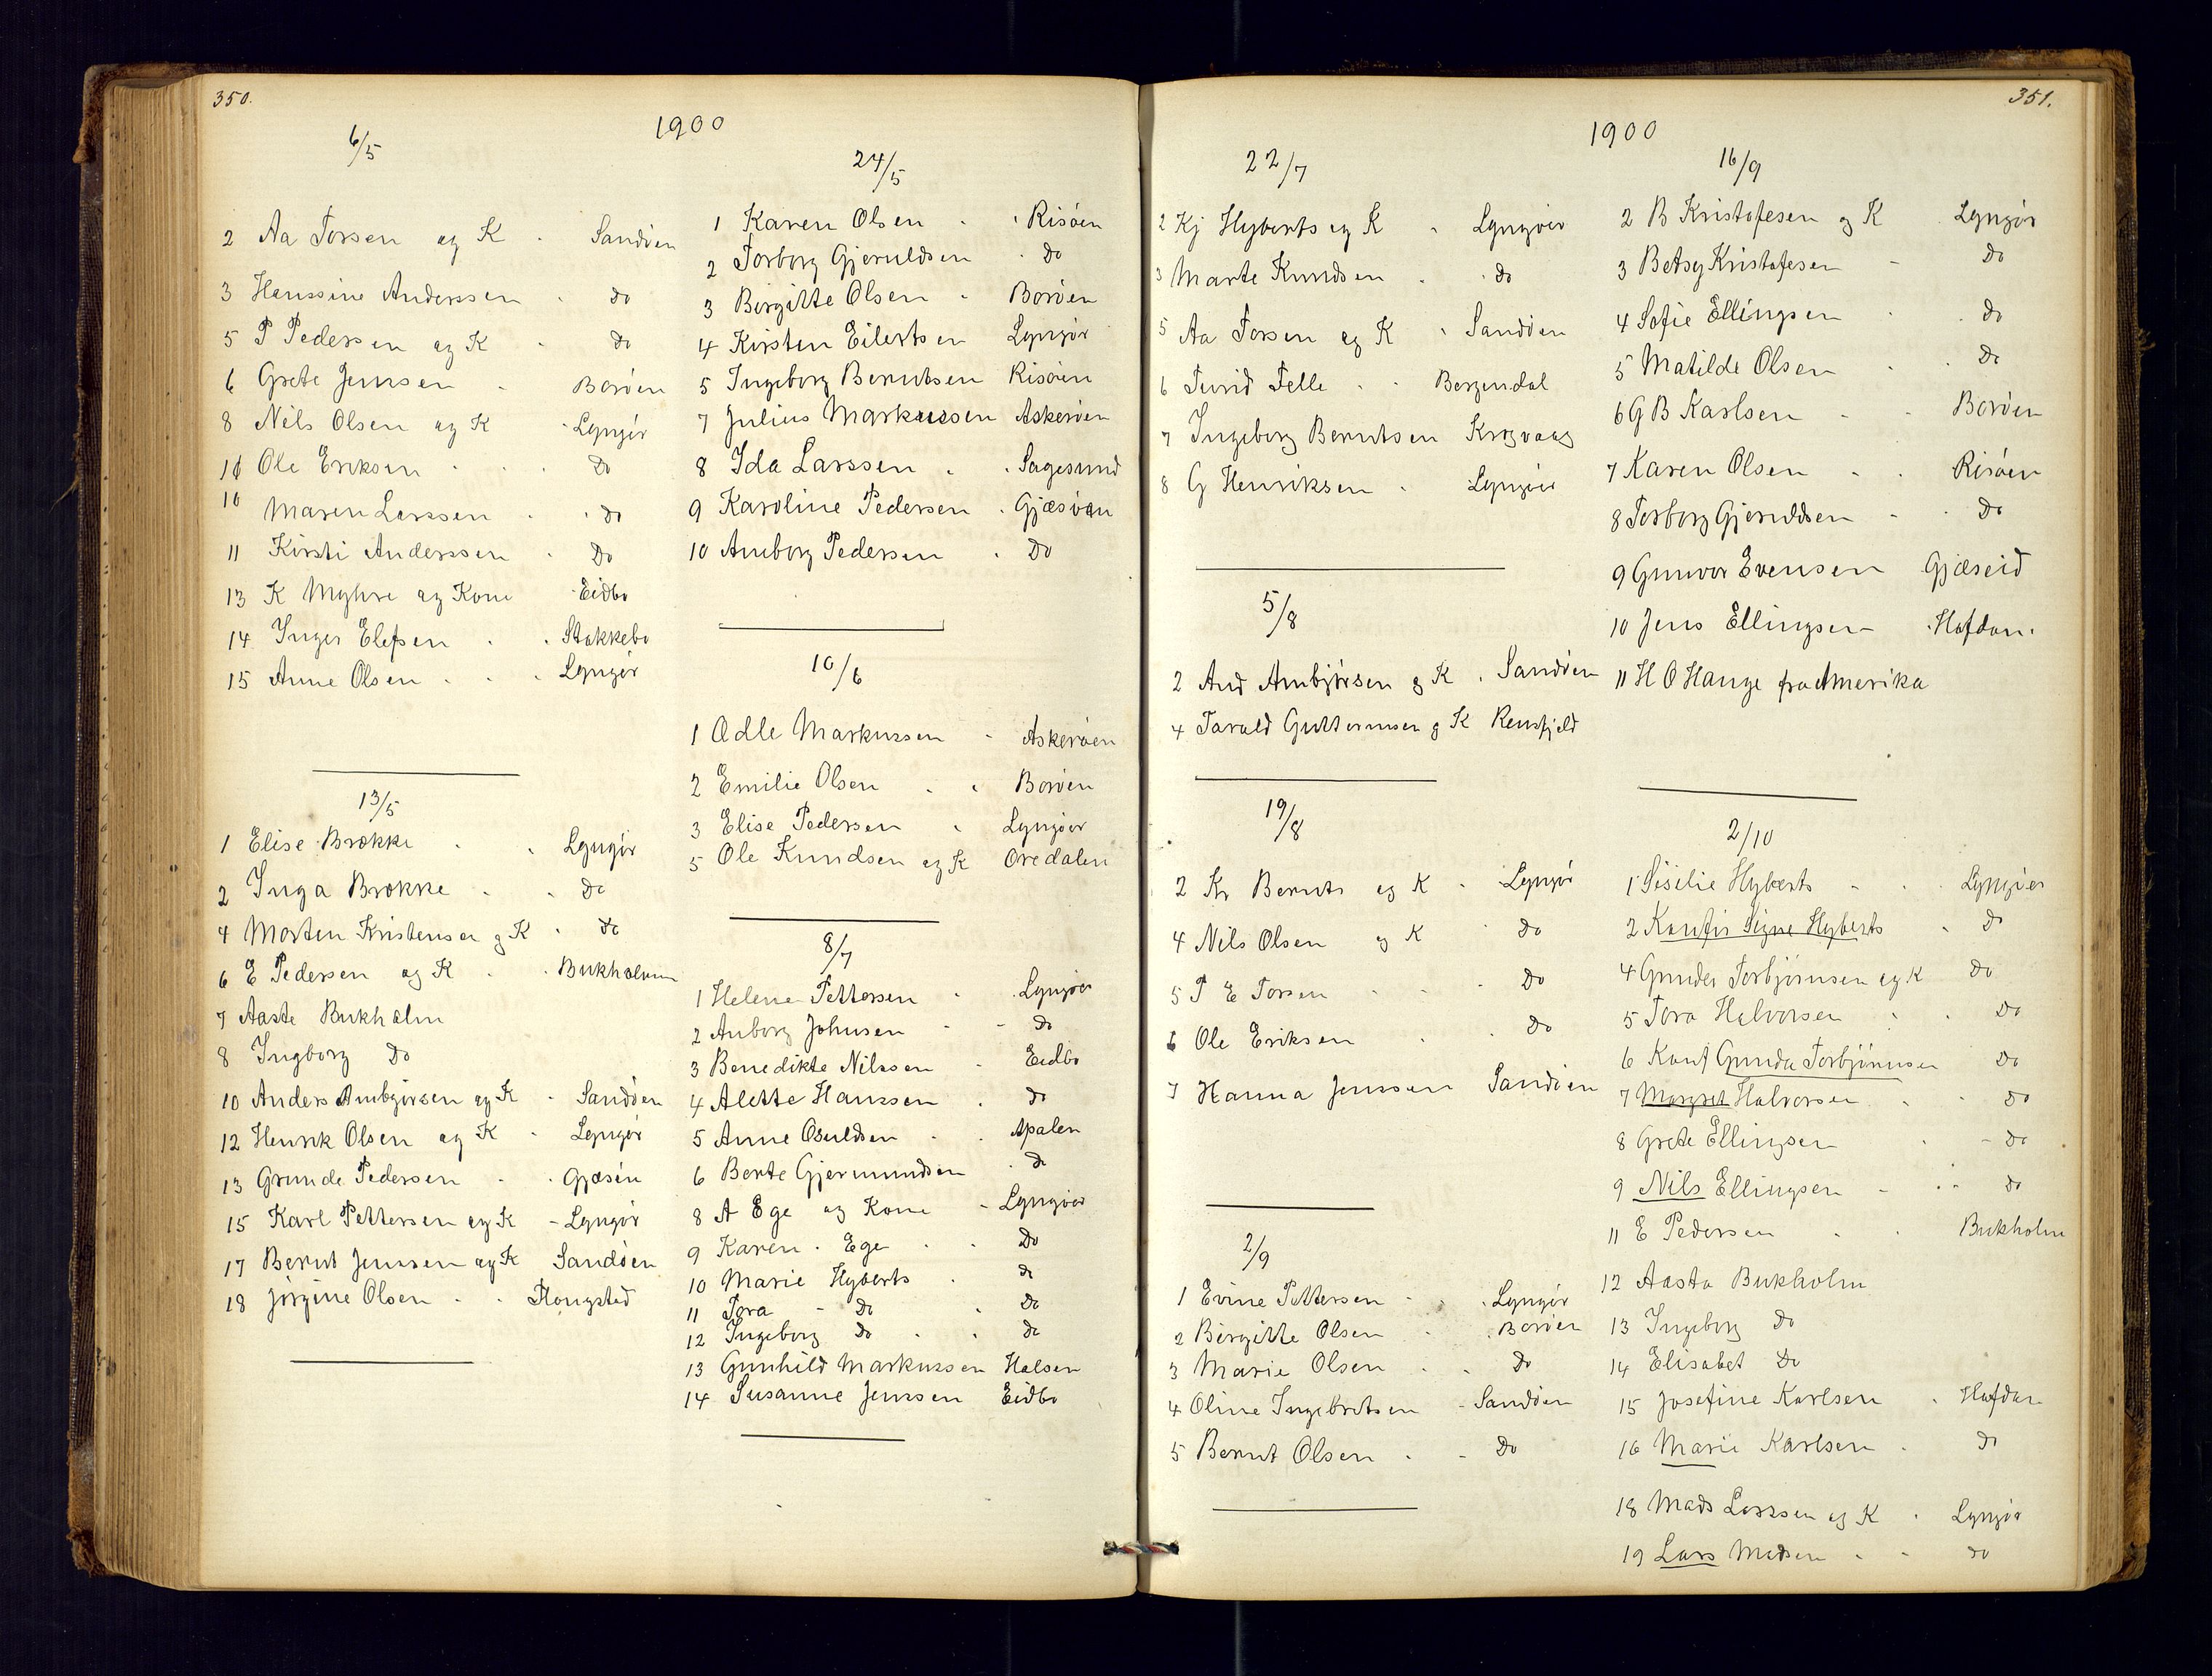 350.
1900
6/5
2 Aa Torsen og K Sandöen
3 Hanssine Anderssen do
5 P Pedersen og K do
6 Grete Jenssen Boröen
8 Nils Olsen og K Lyngör
Ole Eriksen Do
10 Maren Larssen do
11 Kirsti Anderssen Do
13 K Myhre og Kone Eidbo
14 Inger Elefsen Stakkebo
15 Anne Olsen Lyngör
13/5
1 Elise Brække Lyngör
2 Inga Brække Do
4 Morten Kristensen og K do
6 E Pedersen og K Bukholmen
7 Aaste Bukholm
8 Ingborg Do
10 Anders Ambjörsen og K Sandöen
12 Henrik Olsen og K Lyngör
13 Grunde Pedersen Gjæsöen
15 Karl Pettersen og K Lyngör
17 Bernt Jenssen og K Sandöen
18 Jörgine Olsen Flougstad
24/5
1 Karen Olsen Risöen
2 Torborg Gjeruldsen Do
3 Birgitte Olsen Boröen
4 Kirsten Eilertsen Lyngör
5 Ingeborg Berntsen Risöen
7 Julius Markussen Askeröen
8 Ida Larssen Sagesund
9 Karoline Pedersen Gjæsöen
10 Amborg Pedersen Do
10/6
1 Odle Markussen Askeröen
2 Emilie Olsen Boröen
3 Elise Pedersen Lyngöer
5 Ole Knudsen og K Oredalen
8/7
1 Helene Pettersen Lyngöer
2 Anborg Johnsen do
3 Benedikte Nilssen Eidbo
4 Alette Hanssen do
5 Anne Osuldsen Apalen
6 Berte Gjermundsen do
8 A Ege og Kone Lyngöer
9 Karen Ege Do
10 Marie Hyberts do
11 Tora Do Do
12 Ingeborg Do do
13 Gunhild Markussen Halsen
14 Susanne Jenssen Eidbo
351.
1900
22/7
2 Kj Hyberts og K Lyngöer
3 Marte Knudsen do
5 Aa Torsen og K Sandöen
6 Turid Felle Bergendal
7 Ingeborg Berntsen Krogvaag
8 G Henriksen Lyngöer
5/8
2 And Ambjörsen og K Sandöen
4 Tarald Guttormsen og K Rensfjeld
19/8
2 Kr Bernts og K Lyngör
4 Nils Olsen og K Do
5 P E Torsen Do
6 Ole Eriksen Do
7 Hanna Jenssen Sandöen
2/9
1 Evine Pettersen Lyngör
2 Birgitte Olsen Boröen
3 Marie Olsen Do
4 Oline Ingebretsen Sandöen
5 Bernt Olsen Do
16/9
2 B Kristofesen og K Lyngör
3 Betsy Kristofesen Do
4 Sofie Ellingsen Do
5 Matilde Olsen Do
6 G B Karlsen Boröen
7 Karen Olsen Risöen
8 Torborg Gjeruldsen Do
9 Gunvor Evensen Gjæseid
10 Jens Ellingsen Hafdan
11 H O Hange fra Amerika
2/10
1 Sisilie Hyberts Lyngöer
2 Konfir Signe Hyberts do
4 Gunder Torbjörnsen og K Do
5 Tora Halvorsen Do
6 Konf Gunda Torbjörnsen Do
7 Margret Halvorsen Do
8 Grete Ellingsen Do
9 Nils Ellingsen do
11 E Pedersen Bukholm
12 Aasta Bukholm
13 Ingeborg Do
14 Elisabet Do
15 Josefine Karlsen Hafdan
16 Marie Karlsen do
18 Mads Larssen og K Lyngör
19 Lars Madsen do